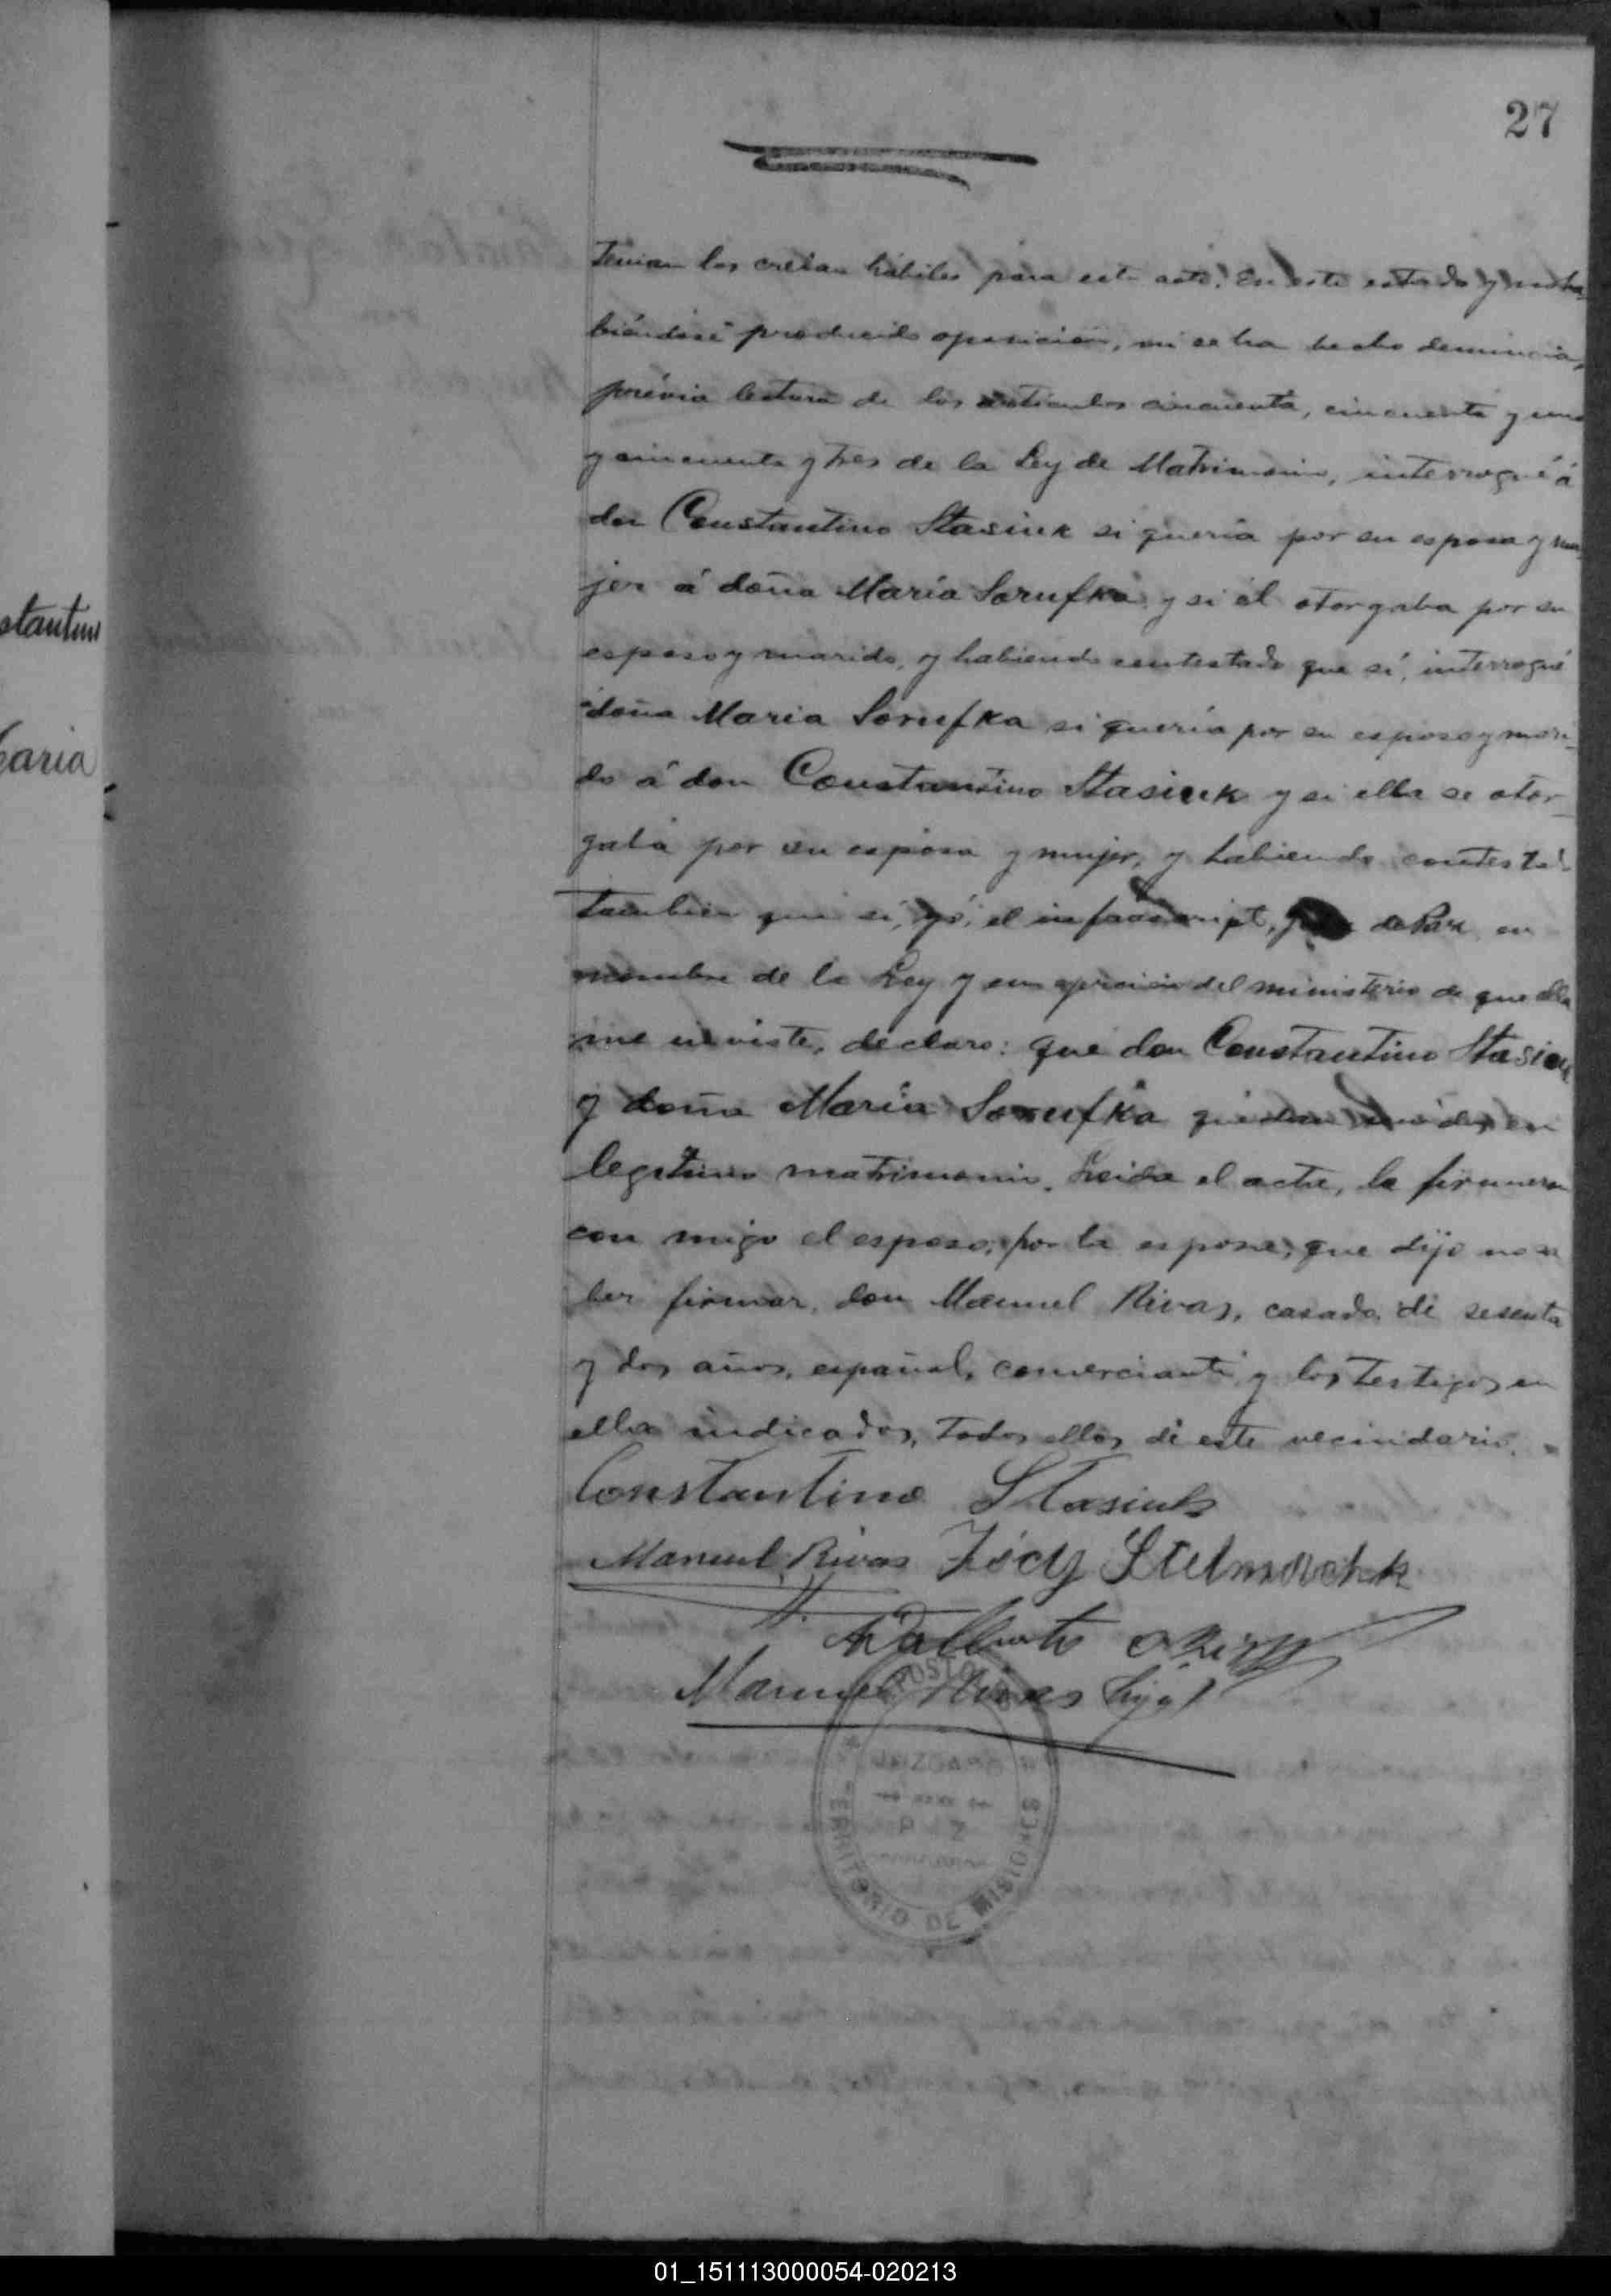 27
tenian los creían hábiles para este acto. En este estado y no ha-
biéndose producido oposición, ni se ha hecho denuncia,
prévia lectura de los articulos cincuenta, cincuenta y uno
y cincuenta y tres de la Ley de Matrimonio, interrogué á
don Constantino Stasiuk si quería por su esposa y mu-
jer á doña María Sorufka y si él otorgaba por su
esposo y marido, y habiendo contestado que sí, interrogué
doña Maria Sorufka si quería por su esposo y mari-
do á don Constantino Stasiuk y si ella se otor-
gaba por su esposa y mujer, y habiendo contesta-
tambien que sí, yó, el infrascript, de Paz en
nombre de la Ley y en del ministerio de que ella
me inviste, declaro: que don Constantino Stasiuk
y doña María Sorufka quedan unidos en
legitimo matrimonio. Leida el acta, la firmaron
con migo el esposo, por la esposa, que dijo no sa
ber firmar, don Manuel Rivas, casado, de sesenta
y dos años, español, comerciante y los testigos en
ella indicados, todos ellos de este vecindario.
stantino
Maria
Constantino Stasiuk
Manuel Rivas Stelmachek
Manuel Rivas hijo
POSTO
JUZGADO
PAZ
TERRITORIO DE MISIONES
01_151113000054-020213